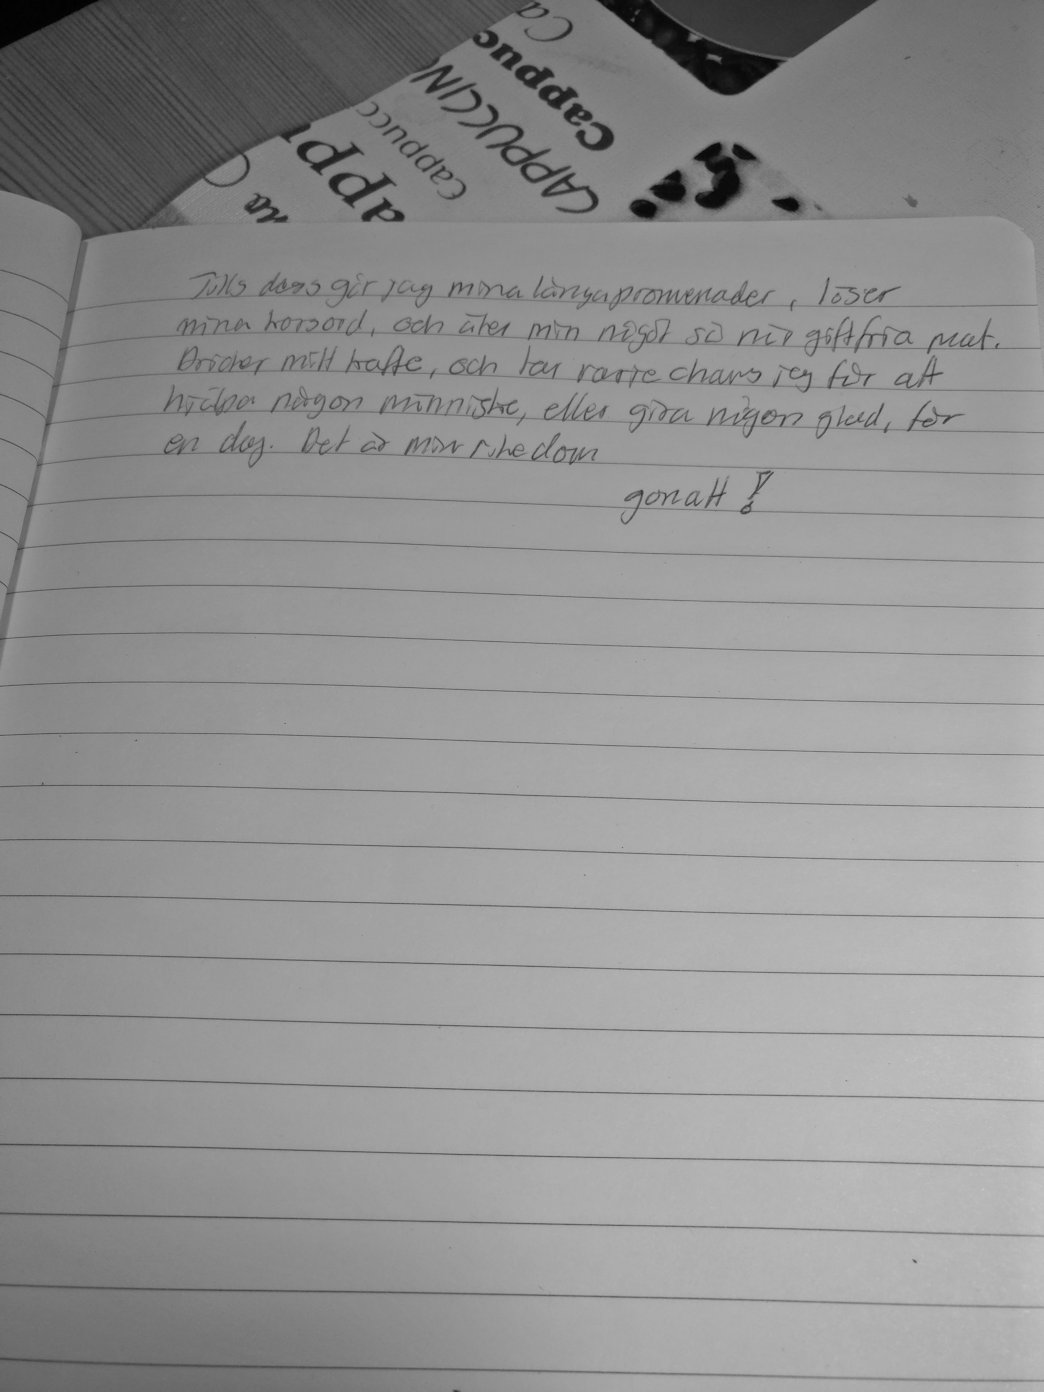 Ca
Cappuc
CAPPUCCIN
Cappucc
app
C
Tills dess går jag mina långa promenader, löser
mina korsord, och äter min något så när giftfria mat.
Dricker mitt kaffe, och tar varje chans jag får att
hjälpa någon människa, eller göra någon glad, för
en dag. Det är min rikedom
gonatt!